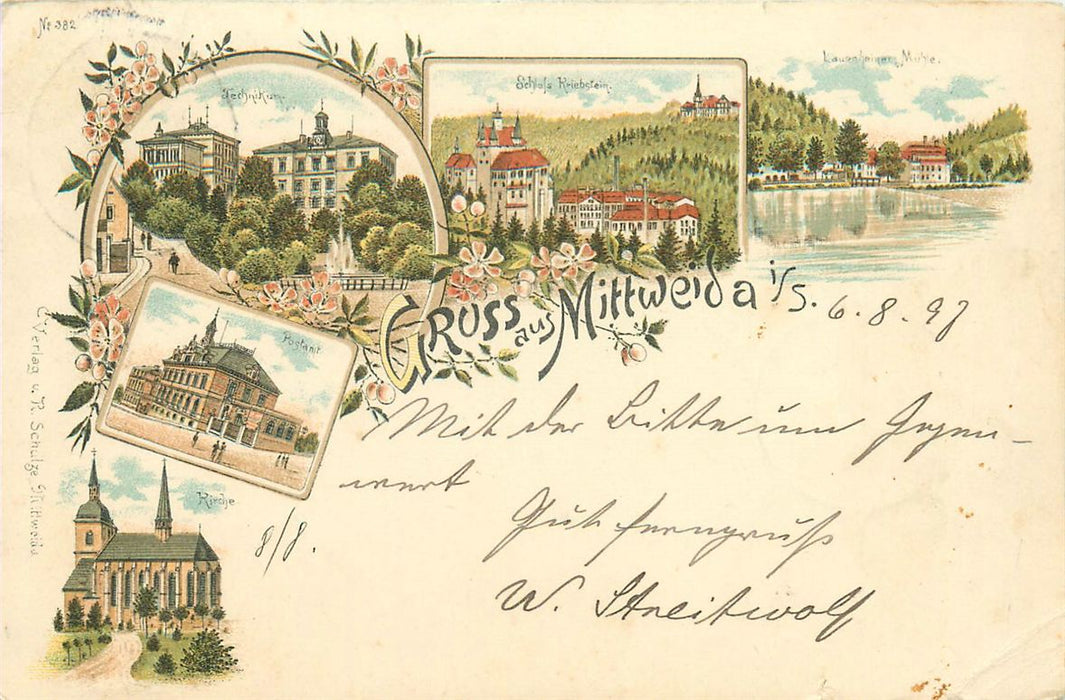 No 382
Technikum.
Schloss Kriebstein.
Lauenhainer Mühle.
Gruss aus Mittweida i/S. 6. 8. 97
Postamt
Mit der Bitte um Gegen-
wert
Kirche
Gut ferngruß
8/8.
W. Streitwolf
Verlag v. R. Schulze, Mittweida